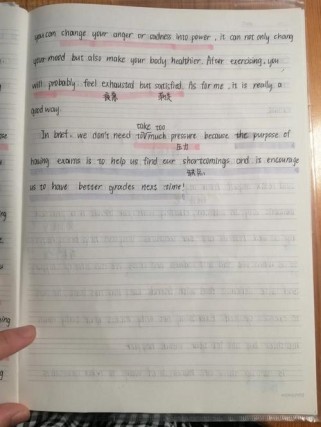 you can change your anger or sadness into power, it can not only chang
your mood but also make your body healthier. After exercising, you
will probably feel exhausted but satisfied. As for me, it is really a
good way.
In bref, we don't need take too much pressure because the purpose of
压力
having exams is to help us find our shortcomings and is encourage
us to have better grades next time!